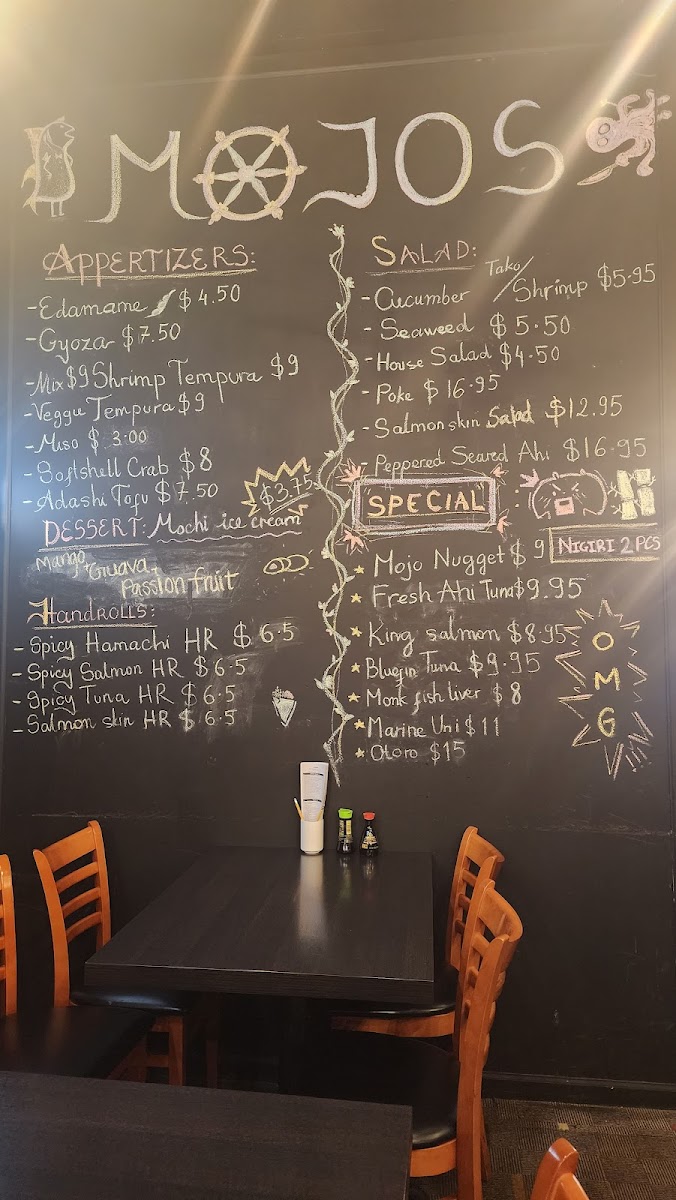 MOJOS
APPERTIZERS:
-Edamame $4.50
-Gyoza $7.50
-Mix $9 Shrimp Tempura $9
-Veggu Tempura $9
-Miso $ 3.00
-Softshell Crab $8
-Adashi Tofu $7.50
$3.75
DESSERT: Mochi ice cream
Mango, Guava,
Passion fruit
HANDROLLS:
- Spicy Hamachi HR $6.5
- Spicy Salmon HR $6.5
- Spicy Tuna HR $6.5
- Salmon skin HR $6.5
SALAD:
- Cucumber Tako/Shrimp $5.95
- Seaweed $5.50
- House Salad $4.50
- Poke $16.95
- Salmon skin Salad $12.95
- Peppered Seared Ahi $16.95
SPECIAL
NIGIRI 2 PCS
Mojo Nugget $9
Fresh Ahi Tuna $9.95
King salmon $8.95
Bluefin Tuna $9.95
Monk fish liver $8
Marine Uni $11
Otoro $15
OMG